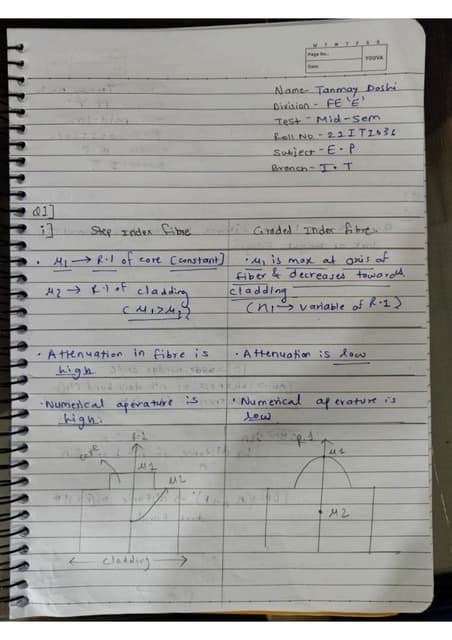 M T W T F S S
Page No.:
Date:
YOUVA
Name- Tanmay Doshi
Division - FE 'E'
Test - Mid-Sem
Roll No. - 21IT1036
Subject - E.P
Branch - I.T
Q1]
i] Step Index fibre
Graded Index fibre
• μ1 → R.I of core [constant]
μ2 → R.I of cladding
(μ1 > μ2)
• μ1 is max at axis of
fiber & decreases towards
cladding
(n1 → variable of R.I)
• Attenuation in fibre is
high.
• Attenuation is low
• Numerical aperature is
high.
• Numerical aperature is
low
core
R.I
μ1
μ2
← cladding →
R.I
μ1
μ2